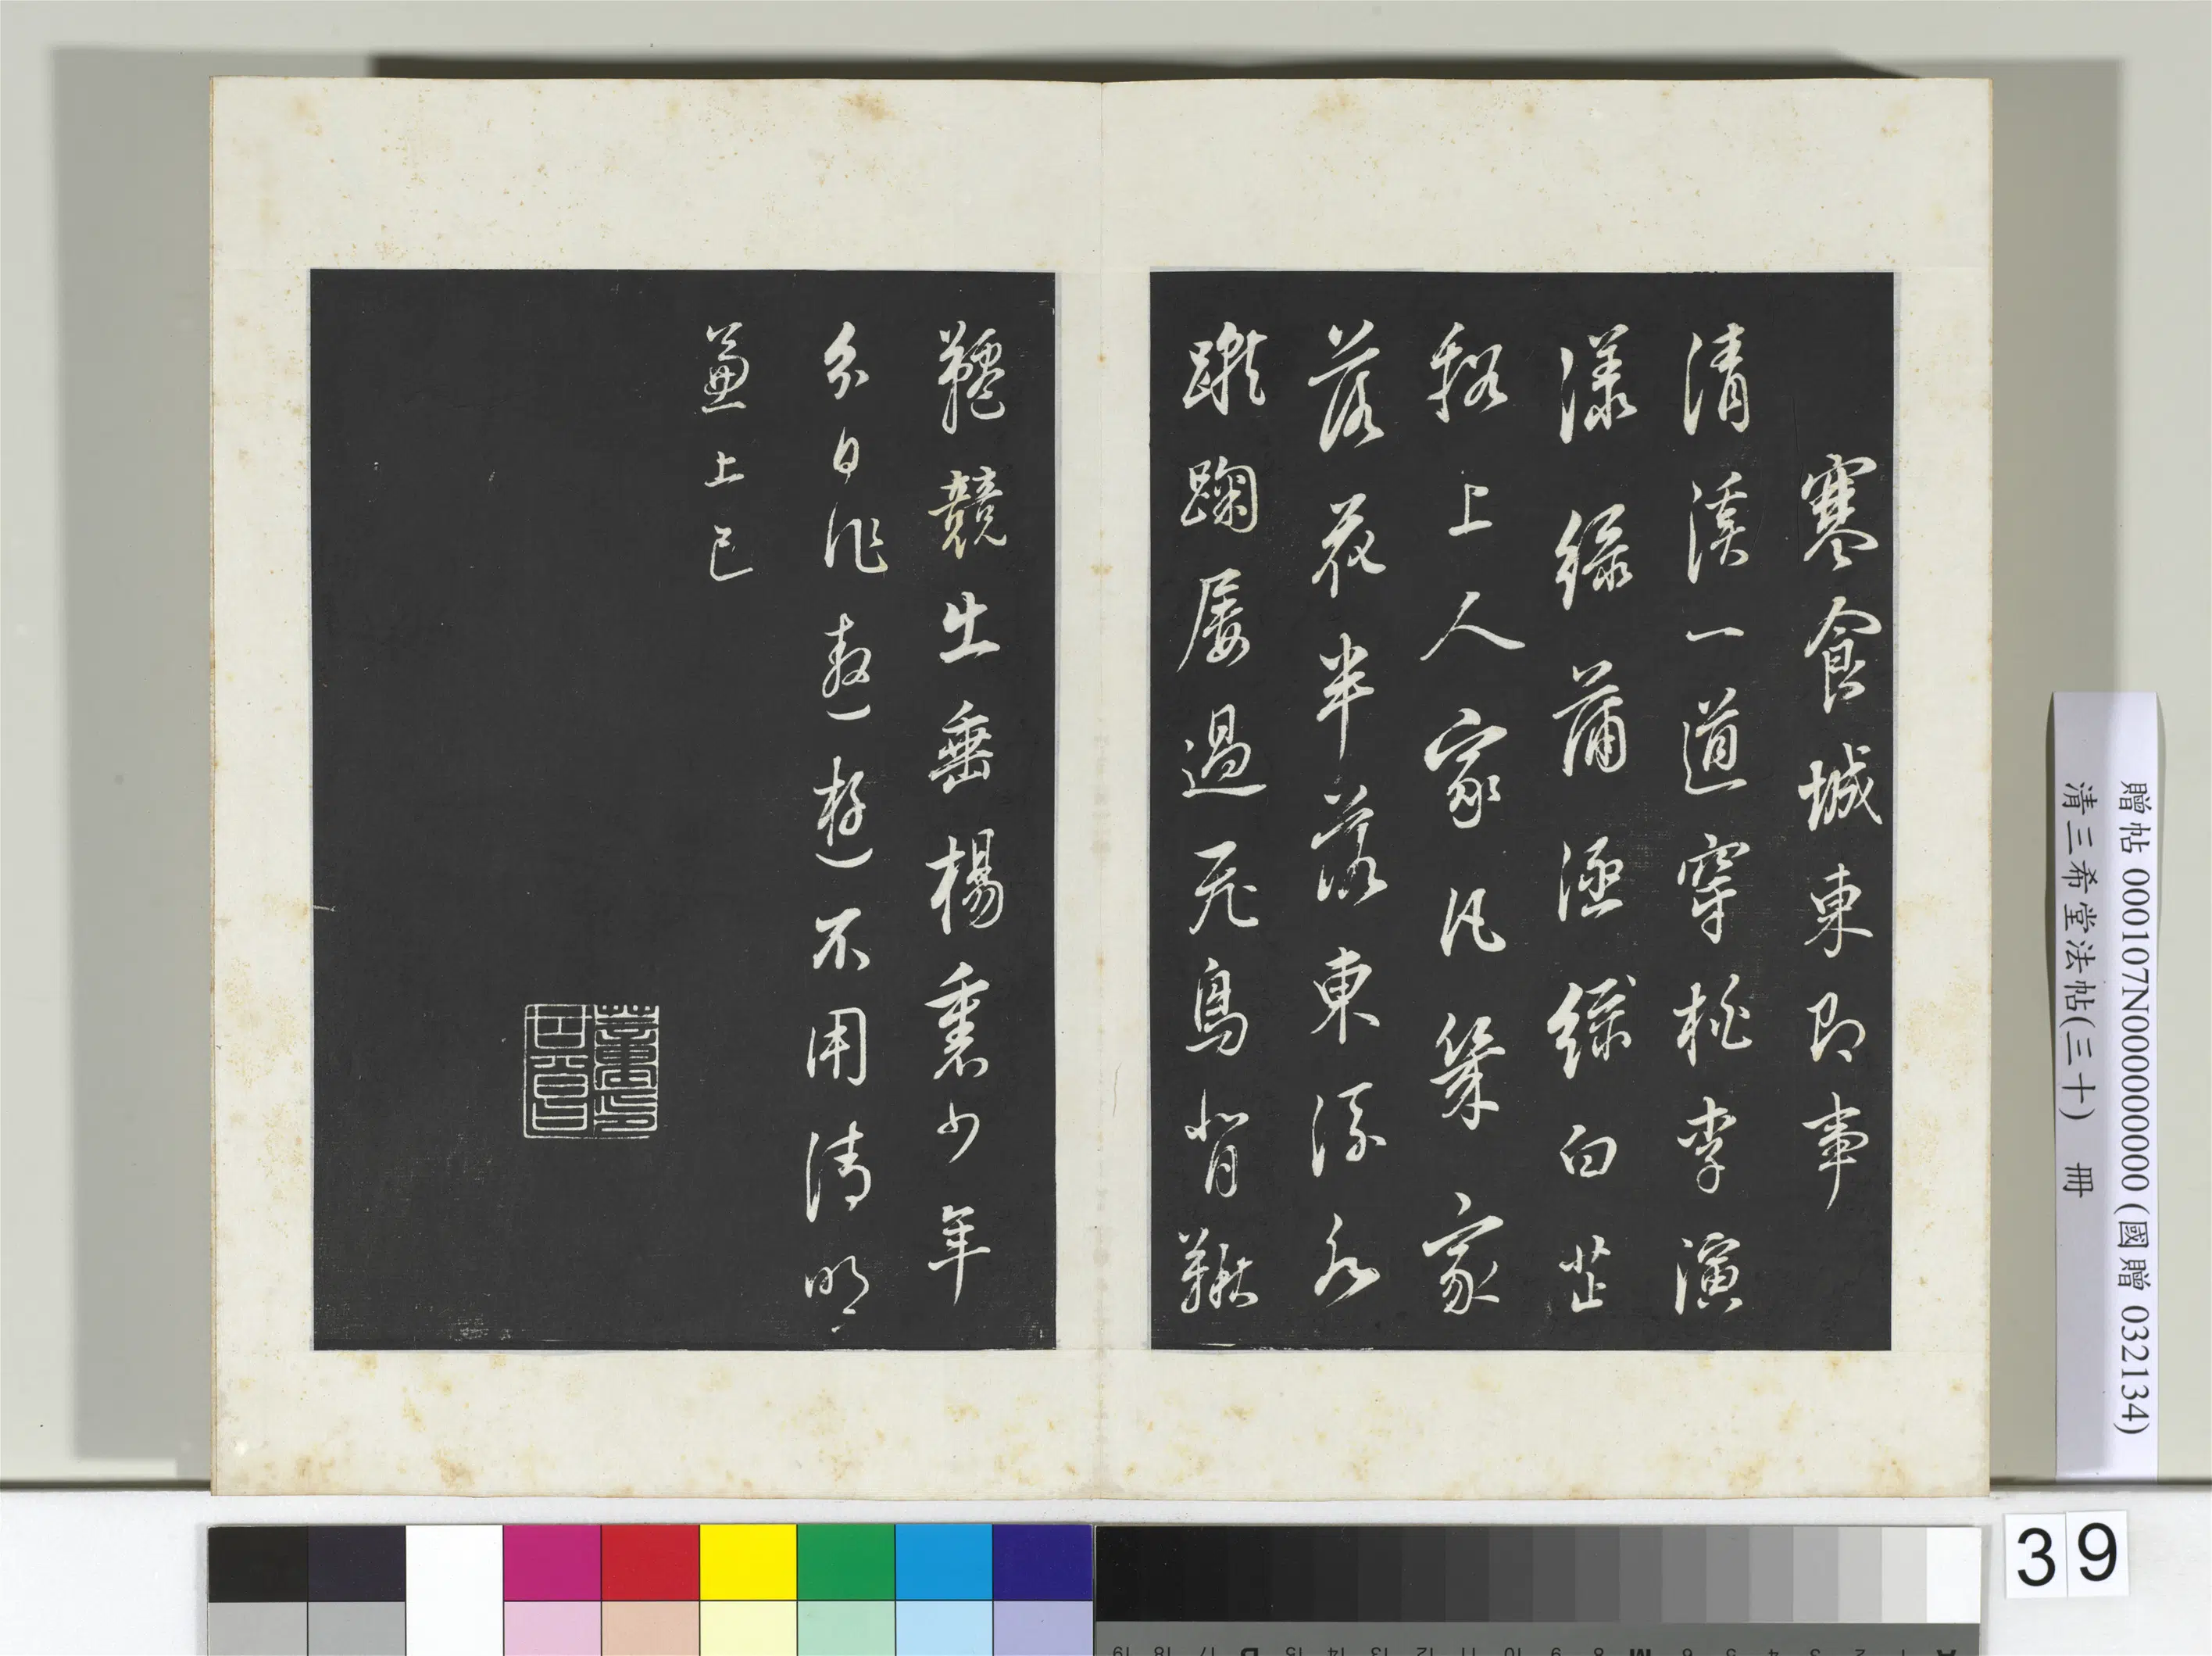 寒食城東即事
清溪一道穿桃李演
漾綠蒲涵綠白芷
谿上人家凡幾家
落花半落東流水
蹴踘屢過飛鳥背鞦
韆競出垂楊裏少年
分日作遨遊不用清明
兼上巳
贈帖 000107N000000000 (國贈 032134)
清三希堂法帖(三十) 冊
39